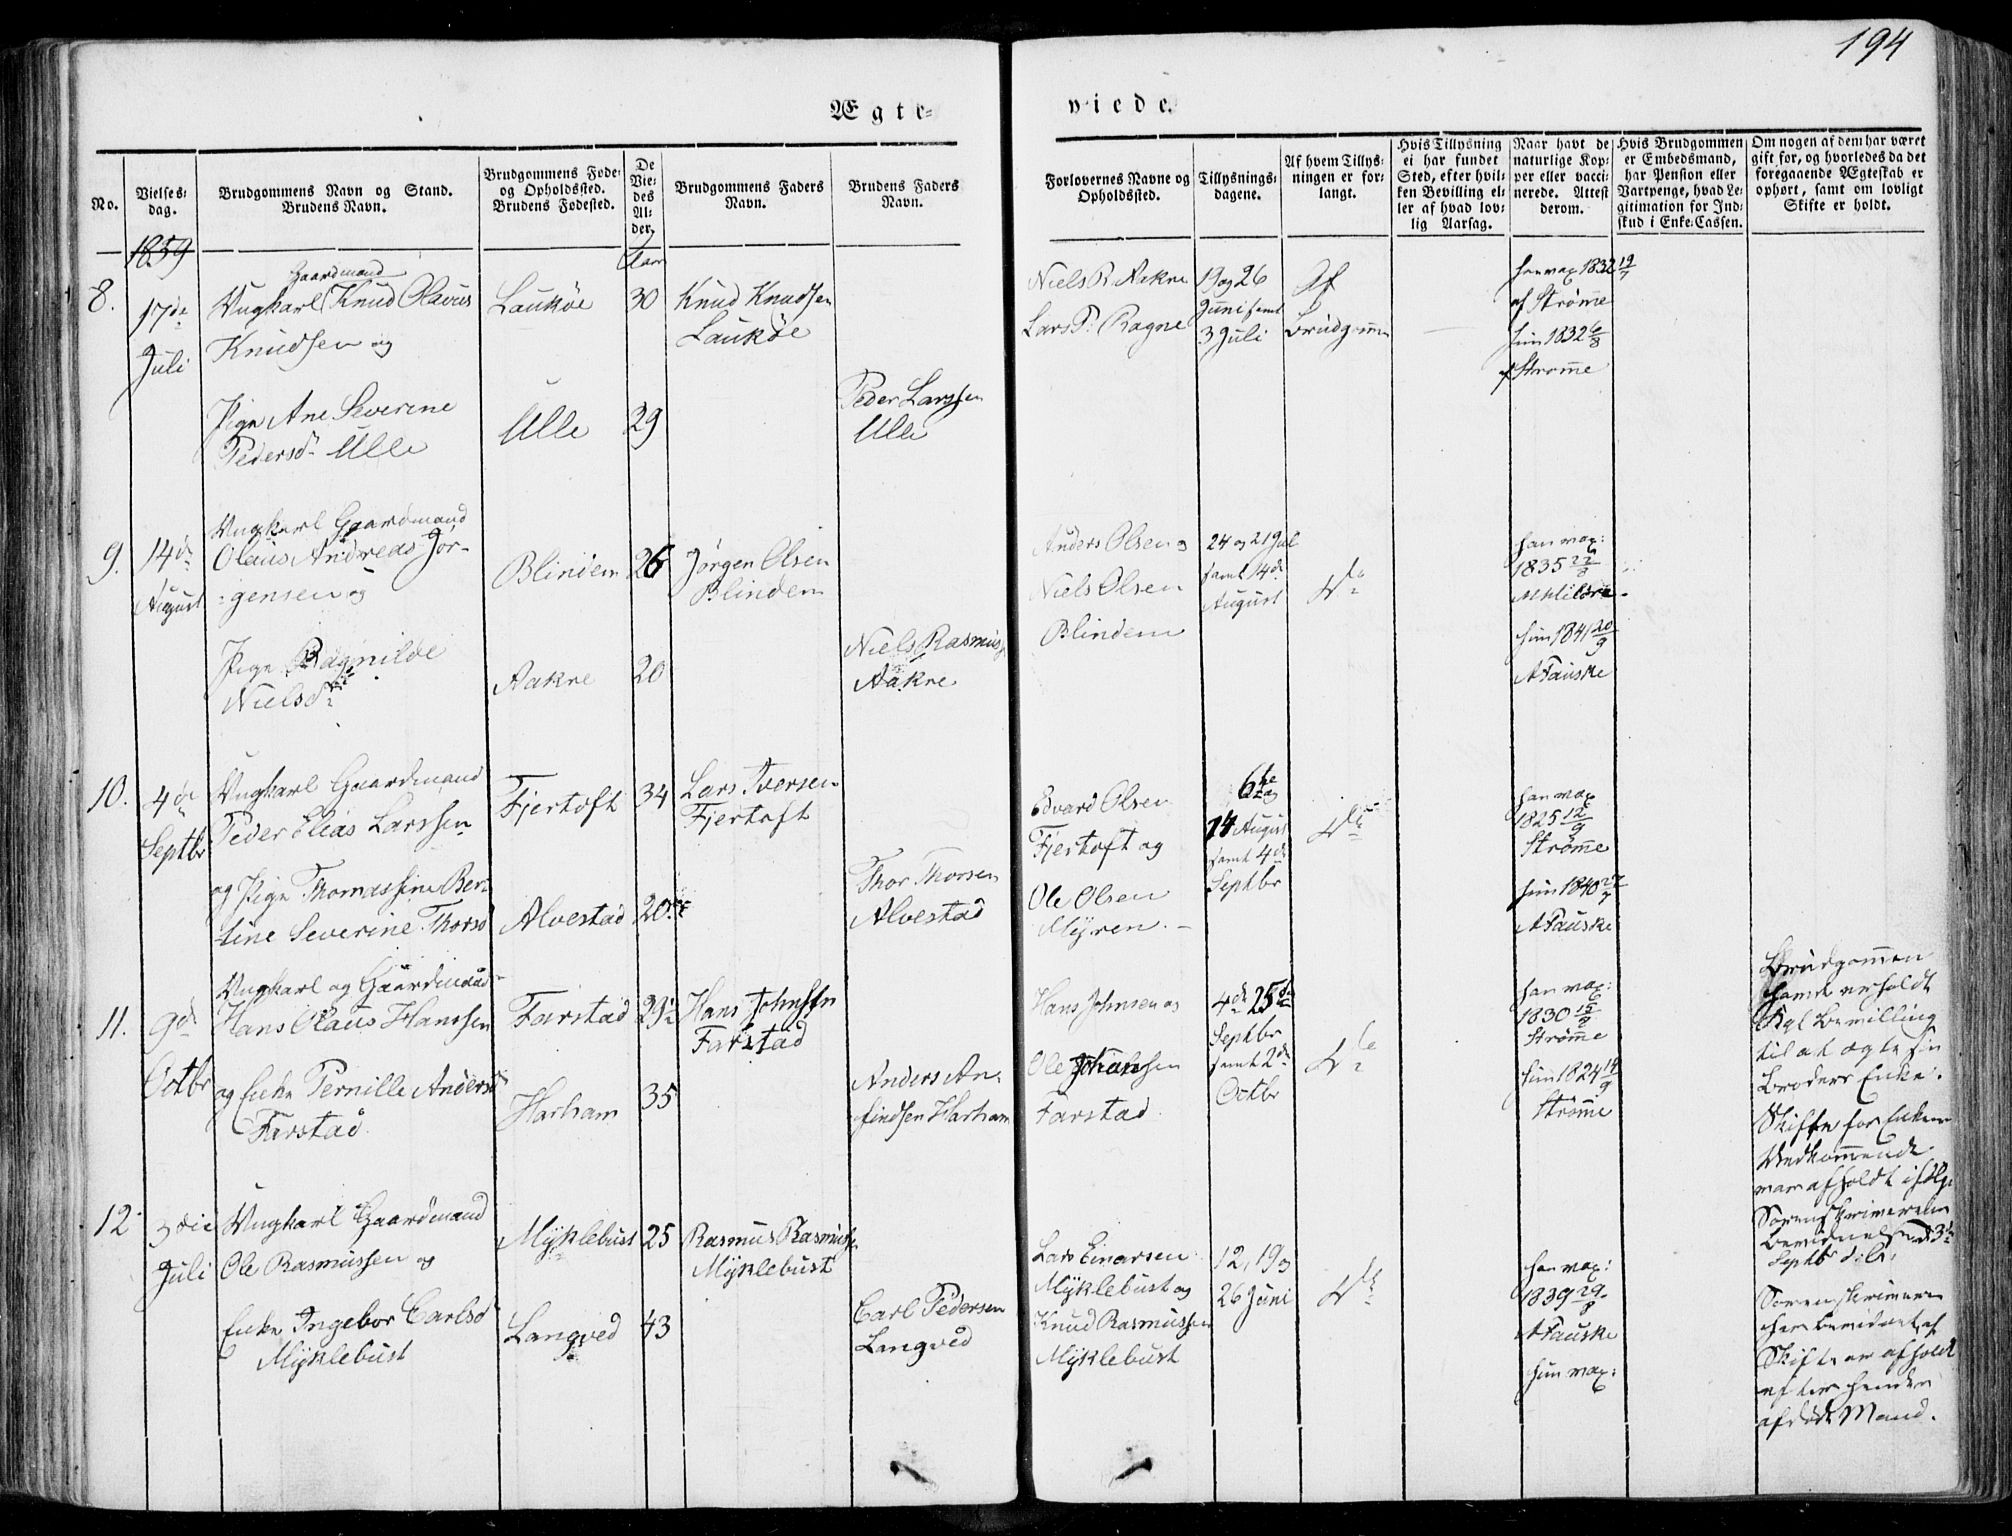 194
Ægte-
viede.
No.
Vielses-
dag.
Brudgommens Navn og Stand.
Brudens Navn.
Brudgommens Føde-
og Opholdssted.
Brudens Fødested.
De
Vie-
des
Al-
der.
Brudgommens Faders
Navn.
Brudens Faders
Navn.
Forlovernes Navne og
Opholdssted.
Tillysnings-
dagene.
Af hvem Tillys-
ningen er for-
langt.
Hvis Tillysning
ei har fundet
Sted, efter hvil-
ken Bevilling el-
ler af hvad lov-
lig Aarsag.
Naar havt de
naturlige Kop-
per eller vacci-
nerede. Attest
derom.
Hvis Brudgommen
er Embedsmand,
har Pension eller
Vartpenge, hvad Le-
gitimation for Ind-
skud i Enke-Cassen.
Om nogen af dem har været
gift før, og hvorledes da det
foregaaende Ægteskab er
ophørt, samt om lovligt
Skifte er holdt.
1859
Aar
8.
17de
Juli
Gaardmand
Ungkarl Knud Olavus
Knudsen og
Pige Ane Severine
Pedersd. Ulle
Laukøe
Ulle
30
29
Knud Knudsen
Laukøe
Peder Larssen
Ulle
Niels R Aakre
Lars P. Rogne
19 og 26
Juni samt
3 Juli
Af
Brudgommen
han vax 1832 19/7
af Strømme
hun 1832 6/8
af Strømme
9.
14de
August
Ungkarl Gaardmand
Olaus Andreas Jør-
gensen og
Pige Ragnilde
Nielsd.
Blindem
Aakre
26
20
Jørgen Olsen
Blindem
Niels Rasmuss.
Aakre
Anders Olsen og
Niels Olsen
Blindem
24 og 21 Jul
samt 14de
August
Do
han vax:
1835 22/8
hun 1841 20/9
A Fauske
10.
4de
Septbr
Ungkarl Gaardmand
Peder Elias Larssen
og Pige Thomassine Ber-
tine Severine Thorsd
Fjertoft
Alvestad
34
20
Lars Iversen
Fjertoft
Thor Thorsen
Alvestad
Edvard Olsen
Fjertoft og
Ole Olsen
Myren.
6te og
14 August
samt 4de
Septbr
Do
han vax
1825 12/9
Strømme
hun 1840 27/7
A Fauske
11.
9de
Octbr
Ungkarl og Gaardmand
Hans Olaus Hanssen
og Enke Pernille Andersd
Farstad
Farstad
Harham
29½
35
Hans Johnsen
Farstad
Anders An-
findsen Harham
Hans Johnsen og
Ole Johansen
Farstad
4de 25de
Septbr
samt 2de
Octbr
Do
han vax:
1830 15/8
Strømme
hun 1824 14/9
Strømme
Brudgommen
havde erholdt
Kgl Bevilling
til at ægte sin
Broders Enke.
Skifte for Enkens
Vedkommende
var afholdt ifølge
Sorenskriverens
Bevidnelse af 3de
Septbr d: A:
12
3die
Juli
Ungkarl Gaardmand
Ole Rasmussen og
Enke Ingebor Carlsd
Myklebust
Myklebust
Langved
25
43
Rasmus Rasmuss.
Myklebust
Carl Pedersen
Langved
Lars Einarsen
Myklebust og
Knud Rasmussen
Myklebust
12, 19 og
26 Juni
Do
han vax:
1839 29/8
A Fauske
hun vax:
Sorenskriveren
har bevidnet, at
Skifte er afholdt
efter hendes
afdøde Mand.